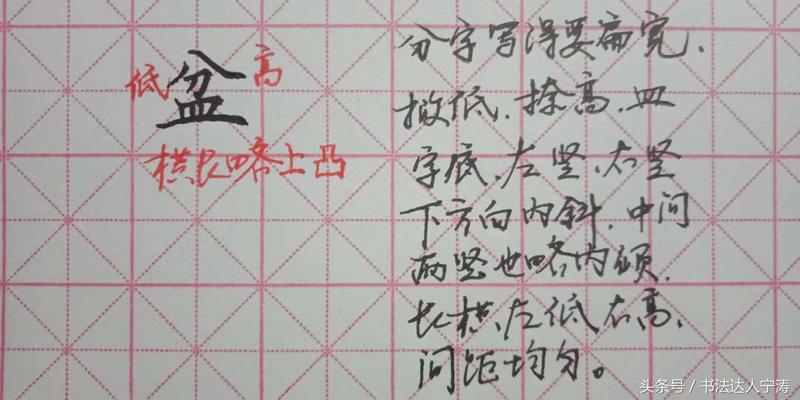 低 盆 高
横长略上凸
分字写得要扁宽.
撇低.捺高.皿
字底.左竖.右竖
下方向内斜.中间
两竖也略内倾.
长横.左低右高.
间距均匀。
头条号 / 书法达人宁涛